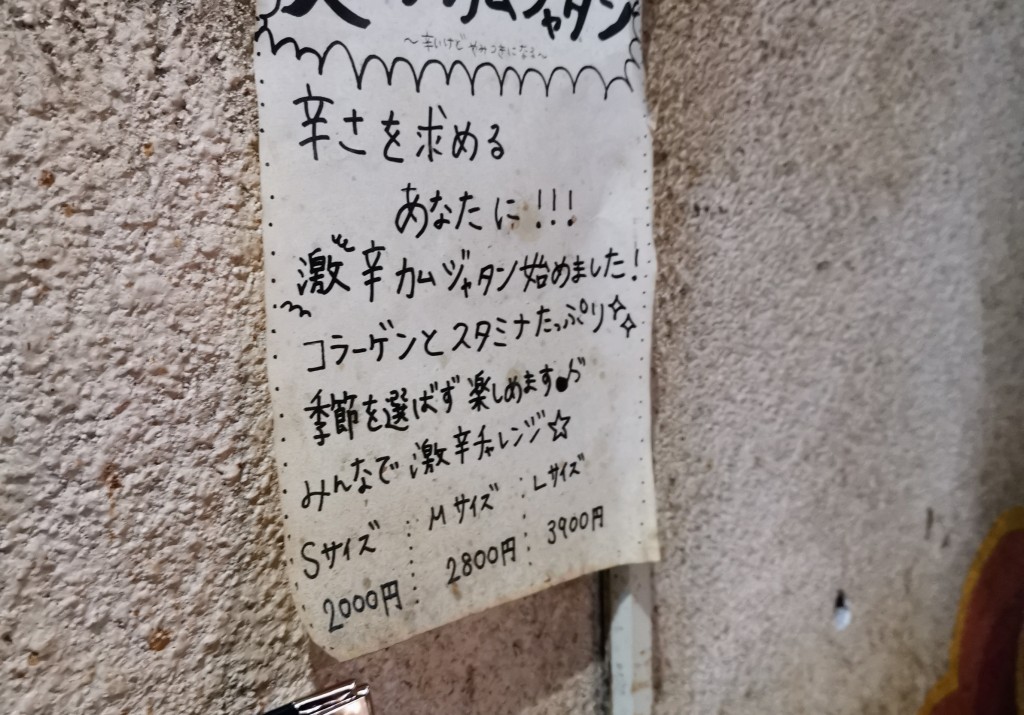 カムジャタン
〜辛いけどやみつきになる〜
辛さを求める
あなたに!!!
激辛カムジャタン始めました!
コラーゲンとスタミナたっぷり☆☆
季節を選ばず楽しめます♪
みんなで激辛チャレンジ☆
Sサイズ : Mサイズ : Lサイズ
2000円 : 2800円 : 3900円